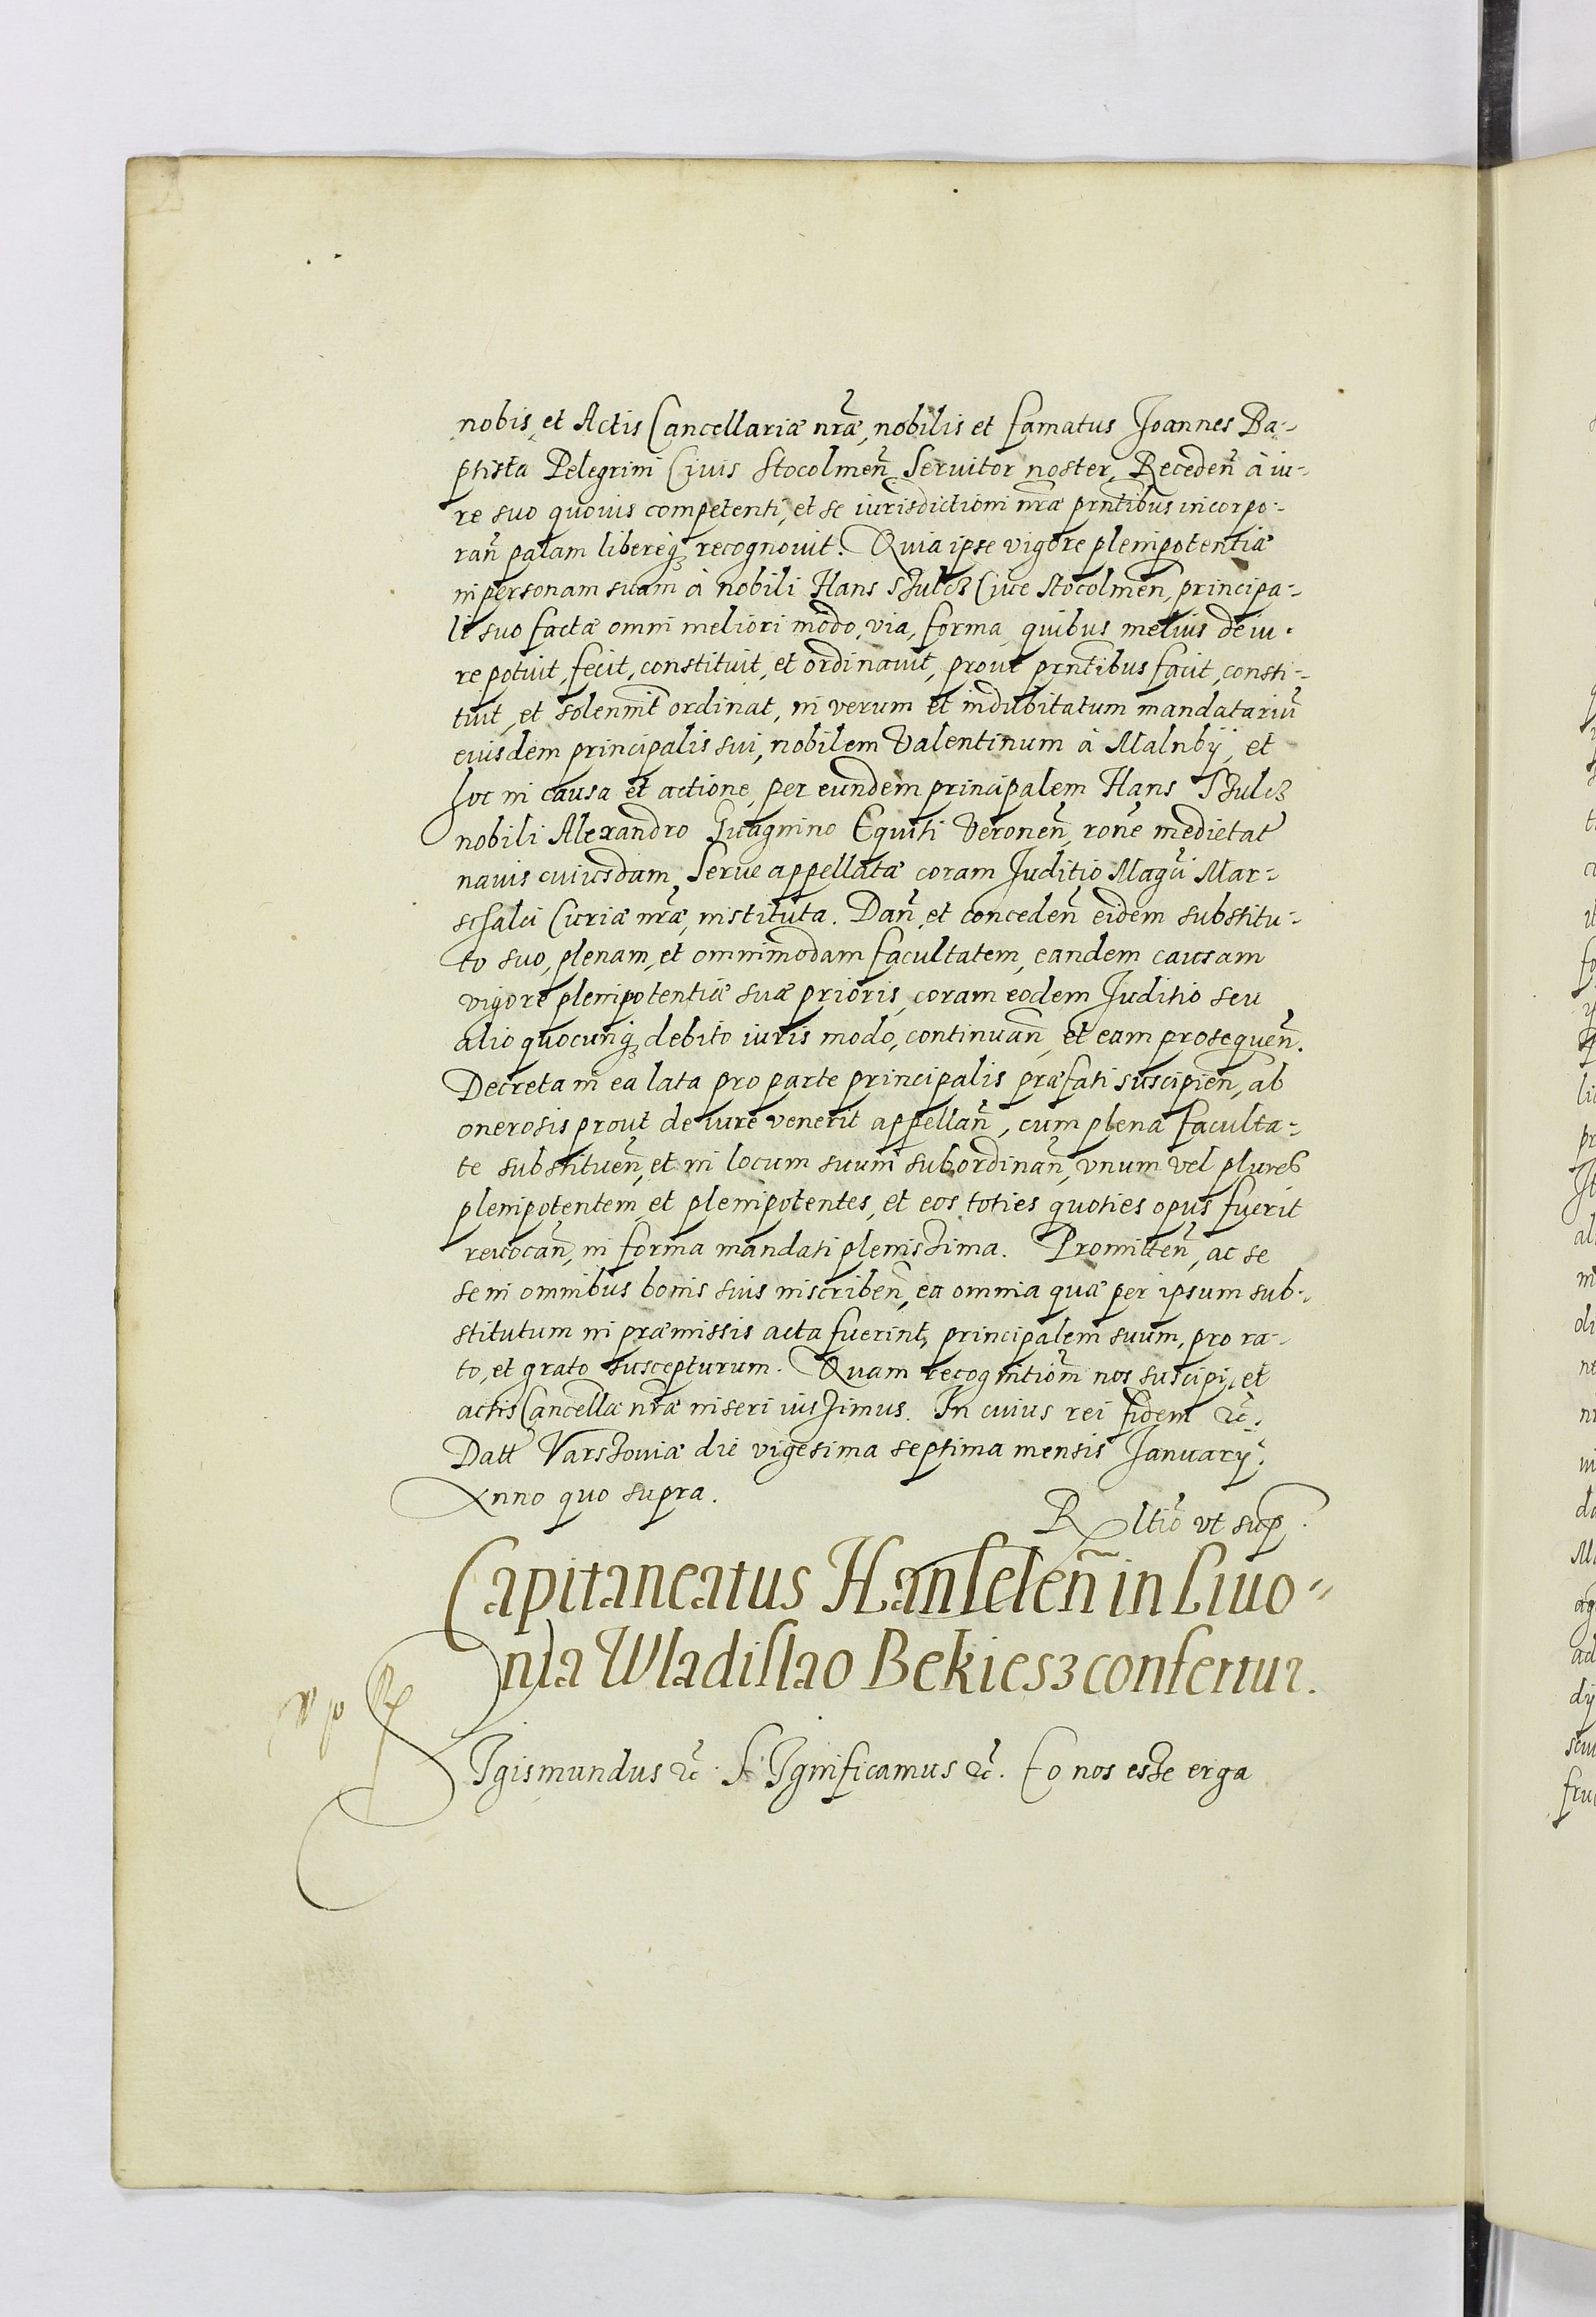 nobis, et Actis Cancellariæ nr̃æ, nobilis et famatus Joannes Ba-
ptista Pelegrini Ciuis Stocolmeñ Seruitor noster, Recedeñ à iu-
re suo quouis competenti, et se iurisdictioni nr̃æ prñtibus incorpo-
rañ palam libereq; recognouit. Quia ipse vigore plenipotentiæ
in personam suam à nobili Hans Szulcz Ciue Stocolmeñ, principa-
li suo factæ omni meliori modo, via, forma, quibus melius de iu-
re potuit, fecit, constituit, et ordinauit, prout prñtibus facit, consti-
tuit, et solennit̃ ordinat, in verum et indubitatum mandatariũ
eiusdem principalis sui, nobilem Valentinum à Malnbÿ, et
hoc in causa et actione, per eundem principalem Hans Szulcz
nobili Alexandro Guagnino Equiti Veroneñ, rõne medietat̃
nauis cuiusdam Serue appellatæ coram Juditio Magci Mar-
schalci Curiæ nr̃æ, instituta. Dañ, et concedeñ eidem substitu-
to suo, plenam, et omnimodam facultatem, eandem causam
vigore plenipotentiæ suæ prioris, coram eodem Juditio seu
alio quocunq; debito iuris modo, continuañ, et eam prosequeñ.
Decreta in ea lata pro parte principalis præfati suscipieñ, ab
onerosis prout de iure venerit appellañ, cum plena faculta-
te substitueñ, et in locum suum subordinañ, vnum vel plures
plenipotentem, et plenipotentes, et eos toties quoties opus fuerit
reuocañ, in forma mandati plenissima. Promitteñ, ac se
se in omnibus bonis suis inscribeñ, ea omnia quæ per ipsum sub-
stitutum in præmissis acta fuerint, principalem suum, pro ra-
to, et grato suscepturum. Quam recognitiom̃ nos suscipi, et
actis Cancellæ nr̃æ inseri iussimus. In cuius rei fidem &c̃.
Datt Varszouiæ die vigesima septima mensis Januarÿ.
Anno quo supra.
R ltiõ vt sup.
Capitaneatus Hanseleñ in Liuo-
nia Wladislao Bekiesz confertur.
SIgismundus &c̃. SIgnificamus &c̃. Eo nos esse erga